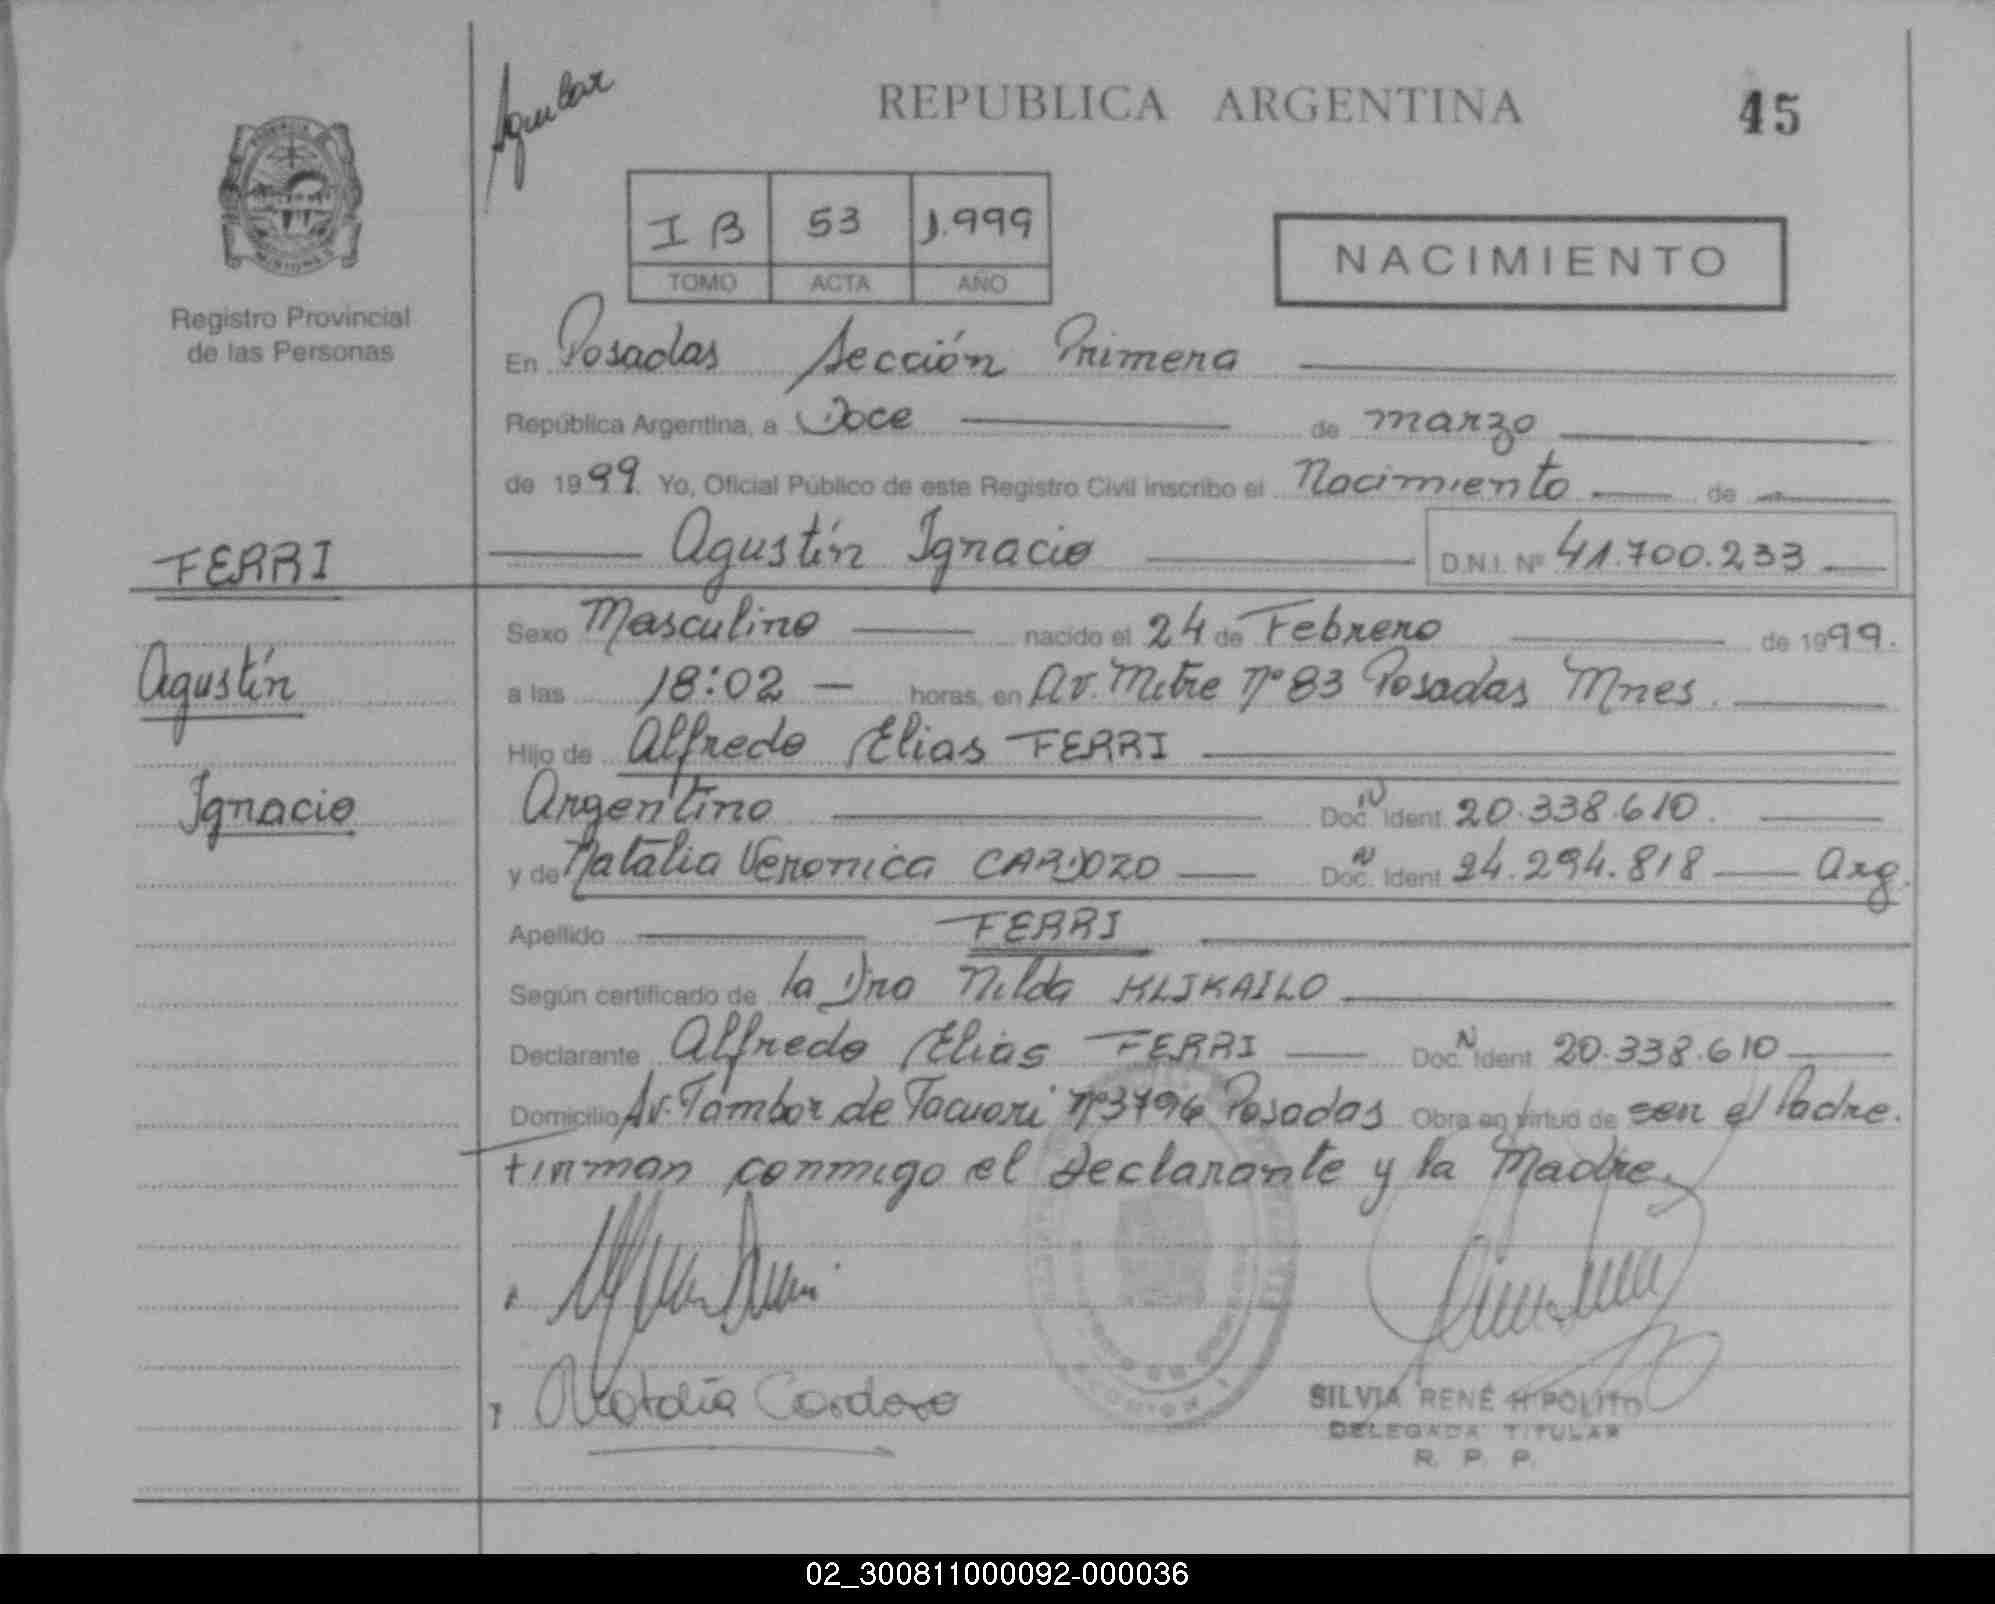 Aguilar
REPUBLICA ARGENTINA
45
I B 53 1.999
TOMO ACTA AÑO
NACIMIENTO
Registro Provincial
de las Personas
En Posadas Sección Primera
República Argentina, a Doce de marzo
de 1999. Yo, Oficial Público de este Registro Civil inscribo el Nacimiento de
Agustín Ignacio D.N.I. Nº 41.700.233
FERRI
Agustín
Ignacio
Sexo Masculino nacido el 24 de Febrero de 1999.
a las 18:02 horas, en Av. Mitre nº 83 Posadas Mnes.
Hijo de Alfredo Elias FERRI
Argentino Doc. N Ident 20.338.610.
y de Natalia Veronica CARDOZO Doc. N Ident 24.294.818 Arg.
Apellido FERRI
Según certificado de la Dra Nilda KLIKAILO
Declarante Alfredo Elias FERRI Doc. N Ident 20.338.610
Domicilio Av. Tambor de Tacuari nº 3796 Posadas Obra en virtud de ser el Padre.
Firman conmigo el declarante y la Madre.
Natalia Cardozo
SILVIA RENÉ HIPOLITO
DELEGADA TITULAR
R. P. P.
02_300811000092-000036